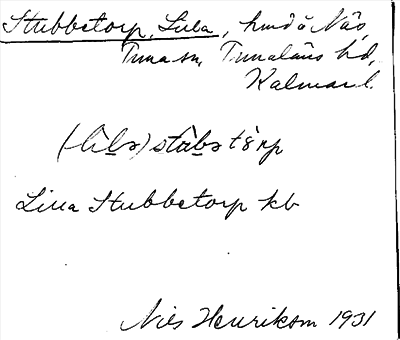 Stubbetorp, Lilla, hmd å Näs,
Tuna sn, Tunaläns hd,
Kalmar l.
(-lìlə) stùbətòrp
Lilla Stubbetorp kb
Nils Henrikson 1931